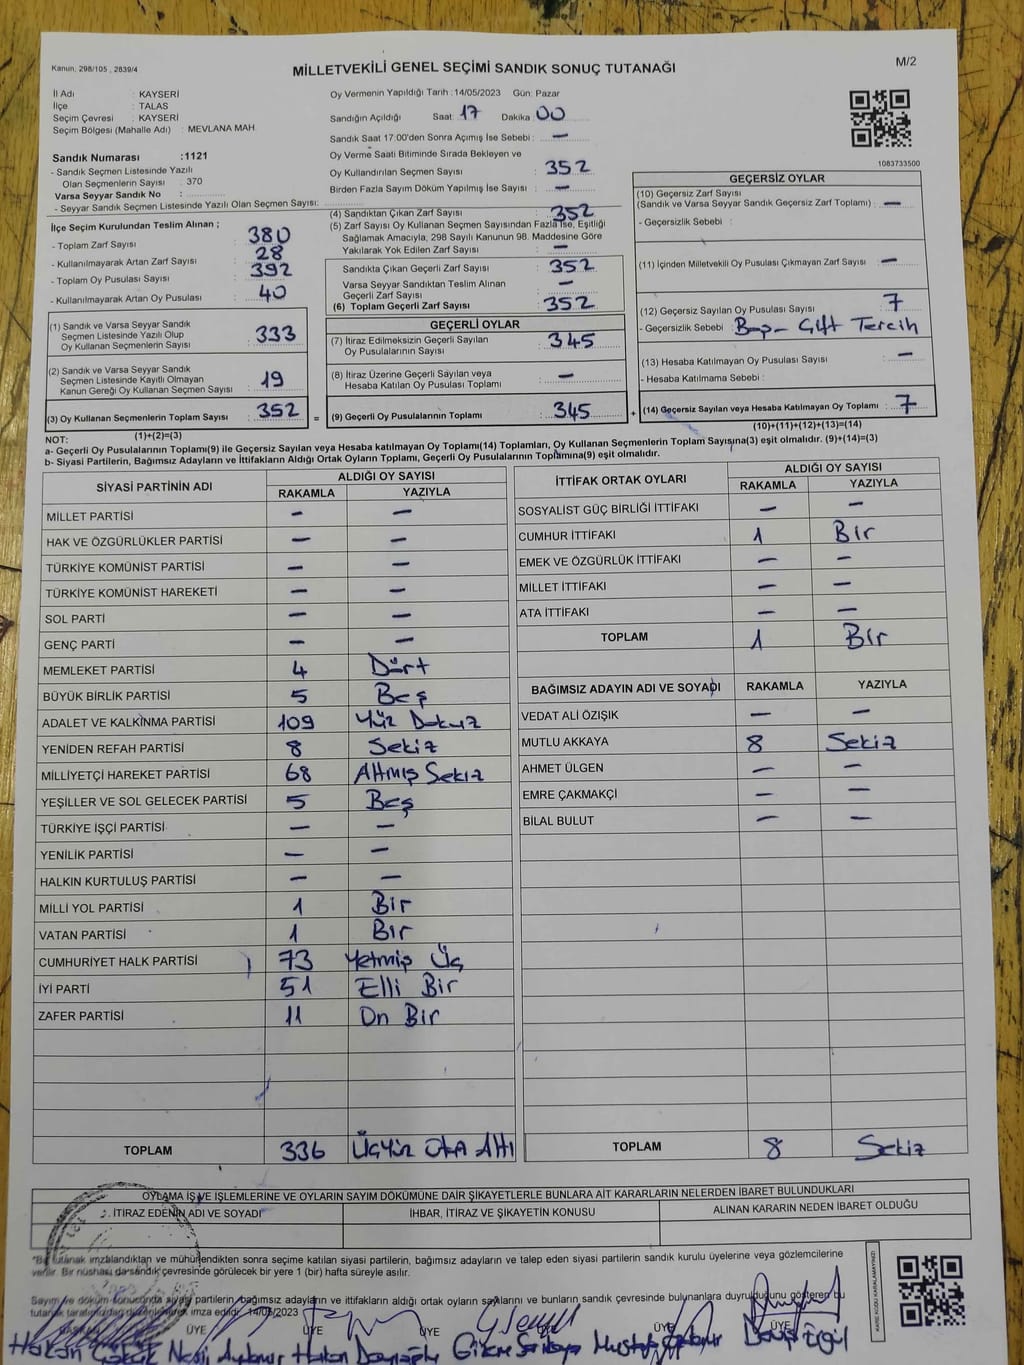 Kanun: 298/105 , 2839/4
MİLLETVEKİLİ GENEL SEÇİMİ SANDIK SONUÇ TUTANAĞI
M/2
İl Adı : KAYSERİ
İlçe : TALAS
Seçim Çevresi : KAYSERİ
Seçim Bölgesi (Mahalle Adı) : MEVLANA MAH
Sandık Numarası :1121
- Sandık Seçmen Listesinde Yazılı
Olan Seçmenlerin Sayısı : 370
Varsa Seyyar Sandık No :
- Seyyar Sandık Seçmen Listesinde Yazılı Olan Seçmen Sayısı:
Oy Vermenin Yapıldığı Tarih : 14/05/2023 Gün: Pazar
Sandığın Açıldığı Saat: 17 Dakika : 00
Sandık Saat 17:00'den Sonra Açımış İse Sebebi : —
Oy Verme Saati Bitiminde Sırada Bekleyen ve
Oy Kullandırılan Seçmen Sayısı : 352
Birden Fazla Sayım Döküm Yapılmış İse Sayısı : —
1083733500
İlçe Seçim Kurulundan Teslim Alınan ;
- Toplam Zarf Sayısı : 380
- Kullanılmayarak Artan Zarf Sayısı : 28
- Toplam Oy Pusulası Sayısı : 392
- Kullanılmayarak Artan Oy Pusulası : 40
(1) Sandık ve Varsa Seyyar Sandık
Seçmen Listesinde Yazılı Olup
Oy Kullanan Seçmenlerin Sayısı : 333
(2) Sandık ve Varsa Seyyar Sandık
Seçmen Listesinde Kayıtlı Olmayan
Kanun Gereği Oy Kullanan Seçmen Sayısı : 19
(3) Oy Kullanan Seçmenlerin Toplam Sayısı : 352 =
(1)+(2)=(3)
(4) Sandıktan Çıkan Zarf Sayısı : 352
(5) Zarf Sayısı Oy Kullanan Seçmen Sayısından Fazla İse, Eşitliği
Sağlamak Amacıyla, 298 Sayılı Kanunun 98. Maddesine Göre
Yakılarak Yok Edilen Zarf Sayısı : —
Sandıkta Çıkan Geçerli Zarf Sayısı : 352
Varsa Seyyar Sandıktan Teslim Alınan
Geçerli Zarf Sayısı : —
(6) Toplam Geçerli Zarf Sayısı : 352
GEÇERLİ OYLAR
(7) İtiraz Edilmeksizin Geçerli Sayılan
Oy Pusulalarının Sayısı : 345
(8) İtiraz Üzerine Geçerli Sayılan veya
Hesaba Katılan Oy Pusulası Toplamı : —
(9) Geçerli Oy Pusulalarının Toplamı : 345 +
GEÇERSİZ OYLAR
(10) Geçersiz Zarf Sayısı
(Sandık ve Varsa Seyyar Sandık Geçersiz Zarf Toplamı) : —
- Geçersizlik Sebebi :
(11) İçinden Milletvekili Oy Pusulası Çıkmayan Zarf Sayısı : —
(12) Geçersiz Sayılan Oy Pusulası Sayısı : 7
- Geçersizlik Sebebi : Boş - Çift Tercih
(13) Hesaba Katılmayan Oy Pusulası Sayısı : —
- Hesaba Katılmama Sebebi :
(14) Geçersiz Sayılan veya Hesaba Katılmayan Oy Toplamı : 7
(10)+(11)+(12)+(13)=(14)
NOT:
a- Geçerli Oy Pusulalarının Toplamı(9) ile Geçersiz Sayılan veya Hesaba katılmayan Oy Toplamı(14) Toplamları, Oy Kullanan Seçmenlerin Toplam Sayısına(3) eşit olmalıdır. (9)+(14)=(3)
b- Siyasi Partilerin, Bağımsız Adayların ve İttifakların Aldığı Ortak Oyların Toplamı, Geçerli Oy Pusulalarının Toplamına(9) eşit olmalıdır.
SİYASİ PARTİNİN ADI ALDIĞI OY SAYISI
RAKAMLA YAZIYLA
MİLLET PARTİSİ — —
HAK VE ÖZGÜRLÜKLER PARTİSİ — —
TÜRKİYE KOMÜNİST PARTİSİ — —
TÜRKİYE KOMÜNİST HAREKETİ — —
SOL PARTİ — —
GENÇ PARTİ — —
MEMLEKET PARTİSİ 4 Dört
BÜYÜK BİRLİK PARTİSİ 5 Beş
ADALET VE KALKINMA PARTİSİ 109 Yüz Dokuz
YENİDEN REFAH PARTİSİ 8 Sekiz
MİLLİYETÇİ HAREKET PARTİSİ 68 Altmış Sekiz
YEŞİLLER VE SOL GELECEK PARTİSİ 5 Beş
TÜRKİYE İŞÇİ PARTİSİ — —
YENİLİK PARTİSİ — —
HALKIN KURTULUŞ PARTİSİ — —
MİLLİ YOL PARTİSİ 1 Bir
VATAN PARTİSİ 1 Bir
CUMHURİYET HALK PARTİSİ 73 Yetmiş Üç
İYİ PARTİ 51 Elli Bir
ZAFER PARTİSİ 11 On Bir
TOPLAM 336 Üçyüz Otuz Altı
İTTİFAK ORTAK OYLARI ALDIĞI OY SAYISI
RAKAMLA YAZIYLA
SOSYALİST GÜÇ BİRLİĞİ İTTİFAKI — —
CUMHUR İTTİFAKI 1 Bir
EMEK VE ÖZGÜRLÜK İTTİFAKI — —
MİLLET İTTİFAKI — —
ATA İTTİFAKI — —
TOPLAM 1 Bir
BAĞIMSIZ ADAYIN ADI VE SOYADI RAKAMLA YAZIYLA
VEDAT ALİ ÖZIŞIK — —
MUTLU AKKAYA 8 Sekiz
AHMET ÜLGEN — —
EMRE ÇAKMAKÇİ — —
BİLAL BULUT — —
TOPLAM 8 Sekiz
OYLAMA İŞ VE İŞLEMLERİNE VE OYLARIN SAYIM DÖKÜMÜNE DAİR ŞİKAYETLERLE BUNLARA AİT KARARLARIN NELERDEN İBARET BULUNDUKLARI
İTİRAZ EDENİN ADI VE SOYADI İHBAR, İTİRAZ VE ŞİKAYETİN KONUSU ALINAN KARARIN NEDEN İBARET OLDUĞU
*Bu tutanak imzalandıktan ve mühürlendikten sonra seçime katılan siyasi partilerin, bağımsız adayların ve talep eden siyasi partilerin sandık kurulu üyelerine veya gözlemcilerine
verilir. Bir nüshası da sandık çevresinde görülecek bir yere 1 (bir) hafta süreyle asılır.
Sayım ve döküm sonucunda siyasi partilerin, bağımsız adayların ve ittifakların aldığı ortak oyların sayılarını ve bunların sandık çevresinde bulunanlara duyrulduğunu gösteren bu
tutanak tarafımızdan düzenlenerek imza edildi. 14/05/2023
BAŞKAN ÜYE ÜYE ÜYE ÜYE ÜYE ÜYE
Hakan
KARE KODU KARALAMAYINIZ!